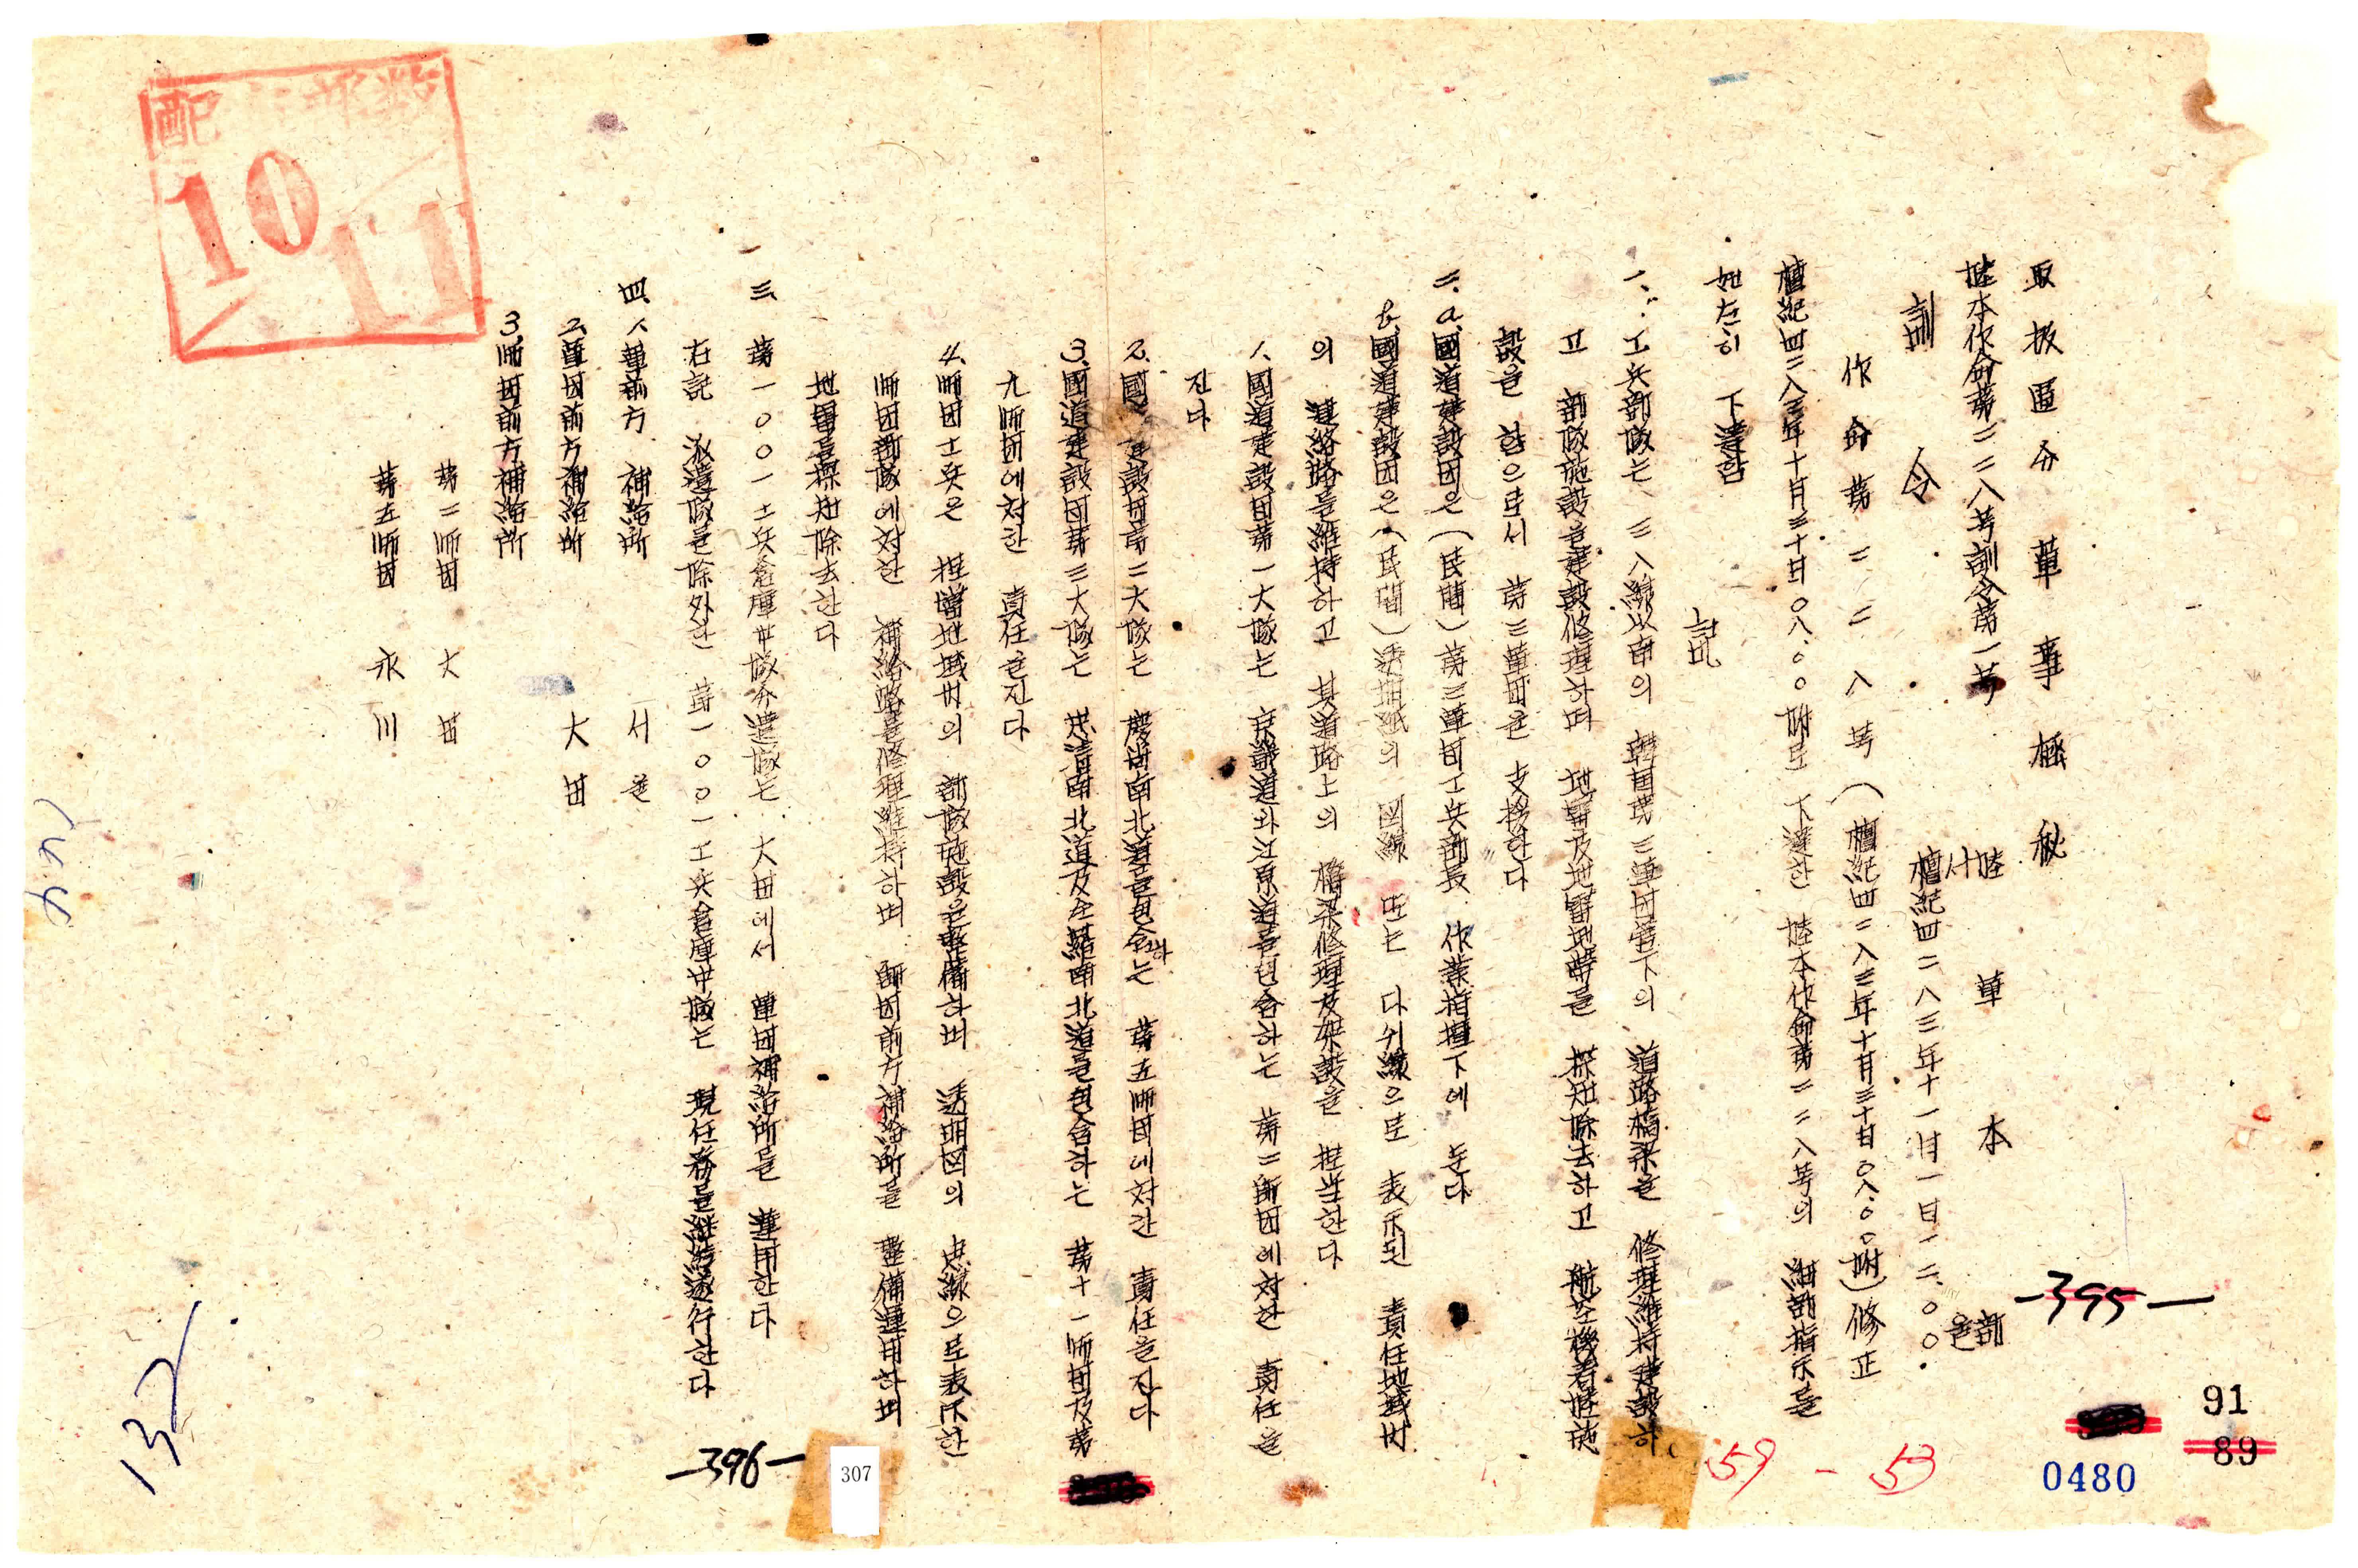 取扱區分 軍事極秘
陸本作命第二二八号訓令第一号
陸軍本部
서울
檀紀四二八三年十一月一日一二.〇〇
訓令
作命第二二八号(檀紀四二八三年十月三十日〇八:〇〇時)修正
檀紀四二八三年十月三十日〇八.〇〇時로 下達한 陸本作命第二二八号의 細部指示를
如左히 下達함
記
一、工兵部隊는 三八線以南의 韓国第三軍団管下의 道路橋梁을 修理維持建設하
고 部隊施設을建設修理하며 地雷及地雷地帶를 探知除去하고 航空機着陸施
設을 함으로서 第三軍団을 支援한다
二.a.國道建設団은(民間)第三軍団工兵部長 作業指揮下에 둔다
b.國道建設団은(民間)透明紙의 図線 또는 다위線으로 表示된 責任地域內
의 道路를維持하고 其道路上의 橋梁修理及架設을 担当한다
1.國道建設団第一大隊는 京畿道와江原道를包含하는 第二師団에対한 責任을
진다
2.國道建設団第二大隊는 慶尚南北道를包含하는 第五師団에対한 責任을진다
3.國道建設団第三大隊는 忠清南北道及全羅南北道를包含하는 第十一師団及第
九師団에対한 責任을진다
4.師団工兵은 担當地域內의 部隊施設을整備하며 透明図의 点線으로表示한
師団部隊에対한 補給路를修理維持하며 師団前方補給所를 整備運用하며
地雷를探知除去한다
三、第一〇〇一工兵倉庫中隊分遣隊는 大田에서 軍団補給所를 運用한다
右記 派遣隊를除外한 第一〇〇一工兵倉庫中隊는 現任務를継続遂行한다
四、1.軍前方 補給所 서울
2.軍団前方補給所 大田
3.師団前方補給所
第二師団 大田
第五師団 永川
配布部数
10
11
-395-
91
89
0480
59 - 53
-396-
307
132